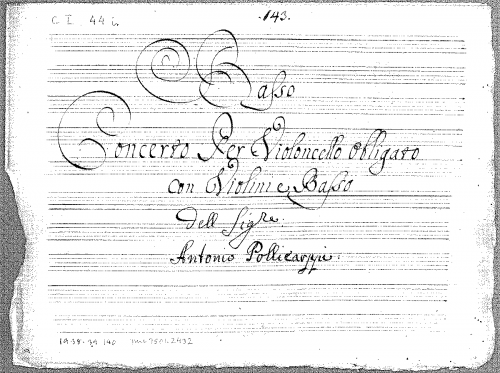 C I 44 i.
.143.
Basso
Concerto Per Violoncello obligato
con Violini e Basso
Dell Sigre.
Antonio Pollicarppi.
1938-39 140